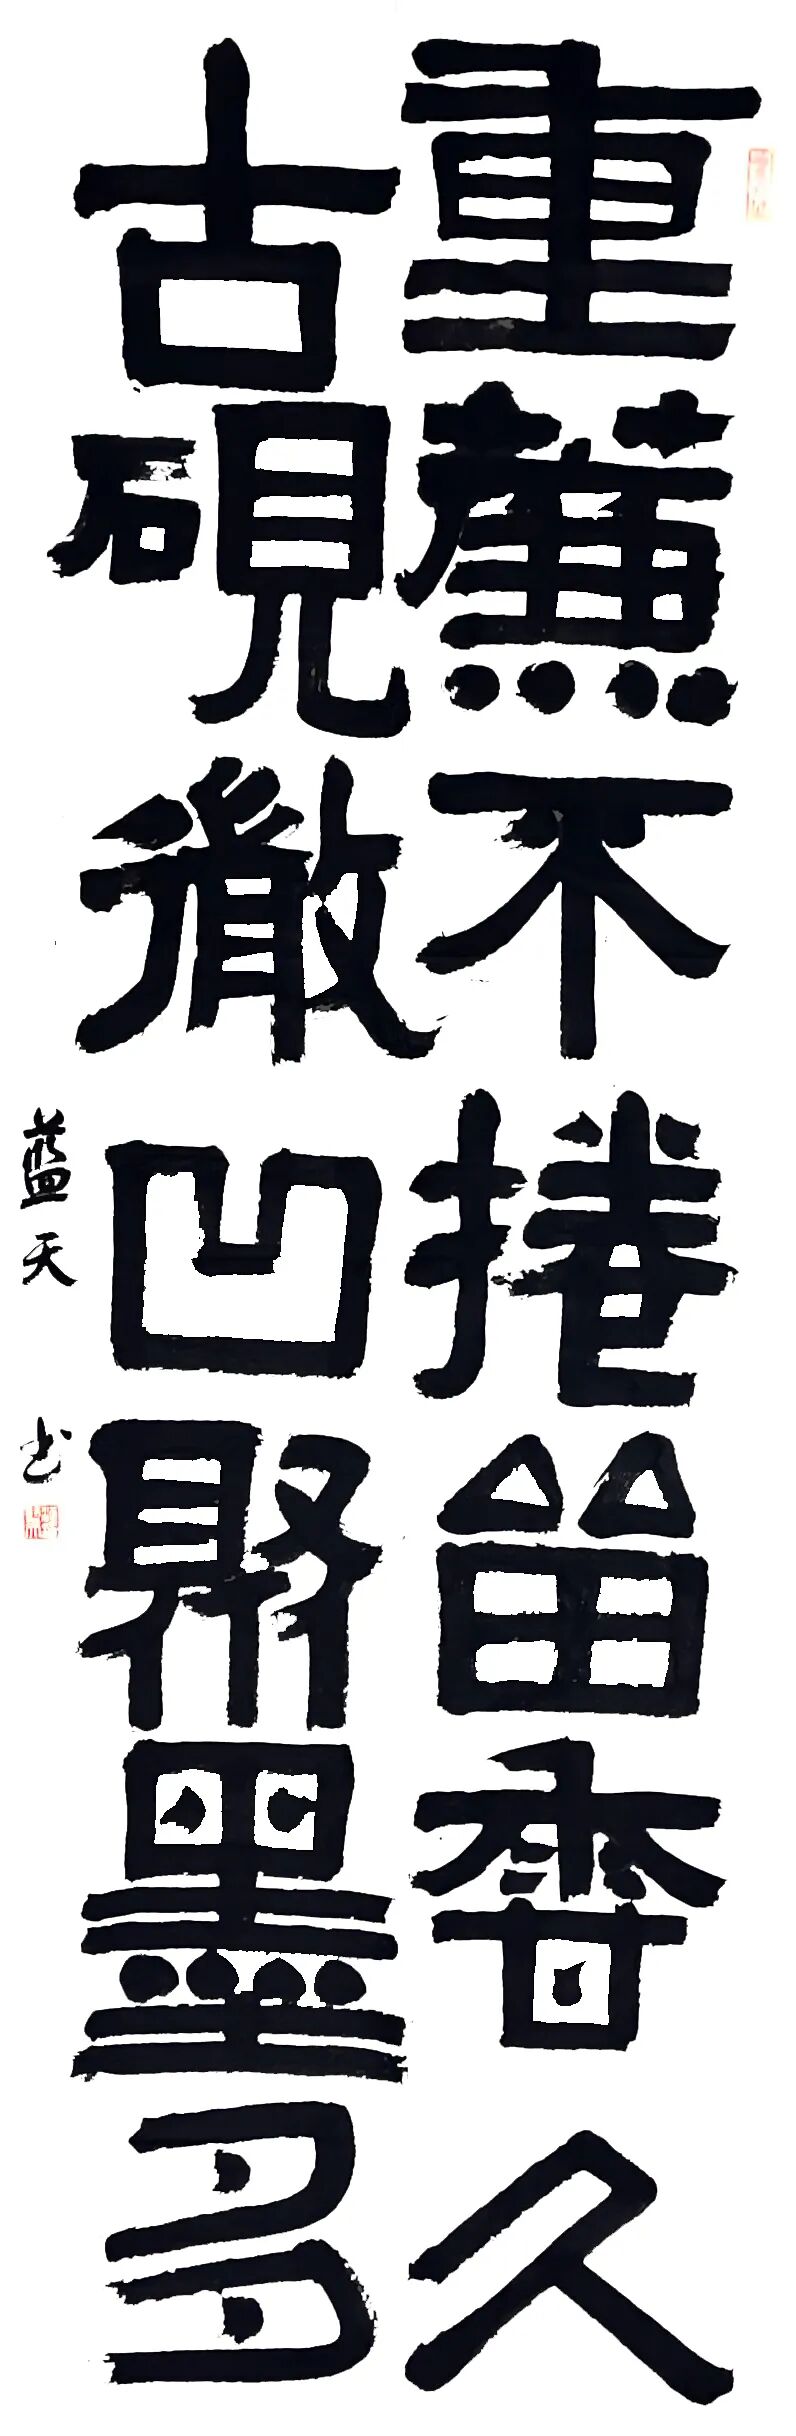 重簾不捲留香久
古硯微凹聚墨多
蓝天书